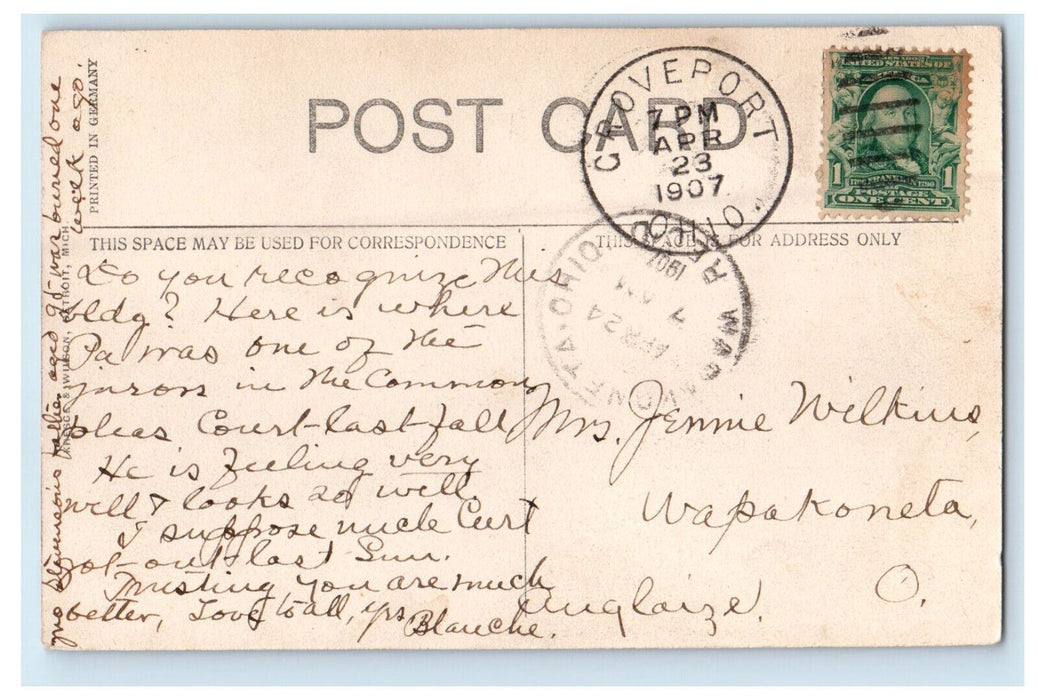 POST CARD
PRINTED IN GERMANY
GROVEPORT
7 PM
APR
23
1907
OHIO
UNITED STATES OF
1 FRANKLIN 1
POSTAGE
ONE CENT
THIS SPACE MAY BE USED FOR CORRESPONDENCE
THIS SPACE IS FOR ADDRESS ONLY
WILSON, DETROIT, MICH
OHIO
1907
7 AM
APR 24
Do you recognize this
bldg? Here is where
Pa was one of the
jurors in the Common
pleas Court last fall
He is feeling very
well & looks so well.
I suppose uncle Curt
got out last Sun.
Trusting you are much
better, Love to all, yrs
Blanche.
father aged 90 was buried one
week ago.
Mrs. Jennie Wilkins,
Wapakoneta,
Auglaize. O.